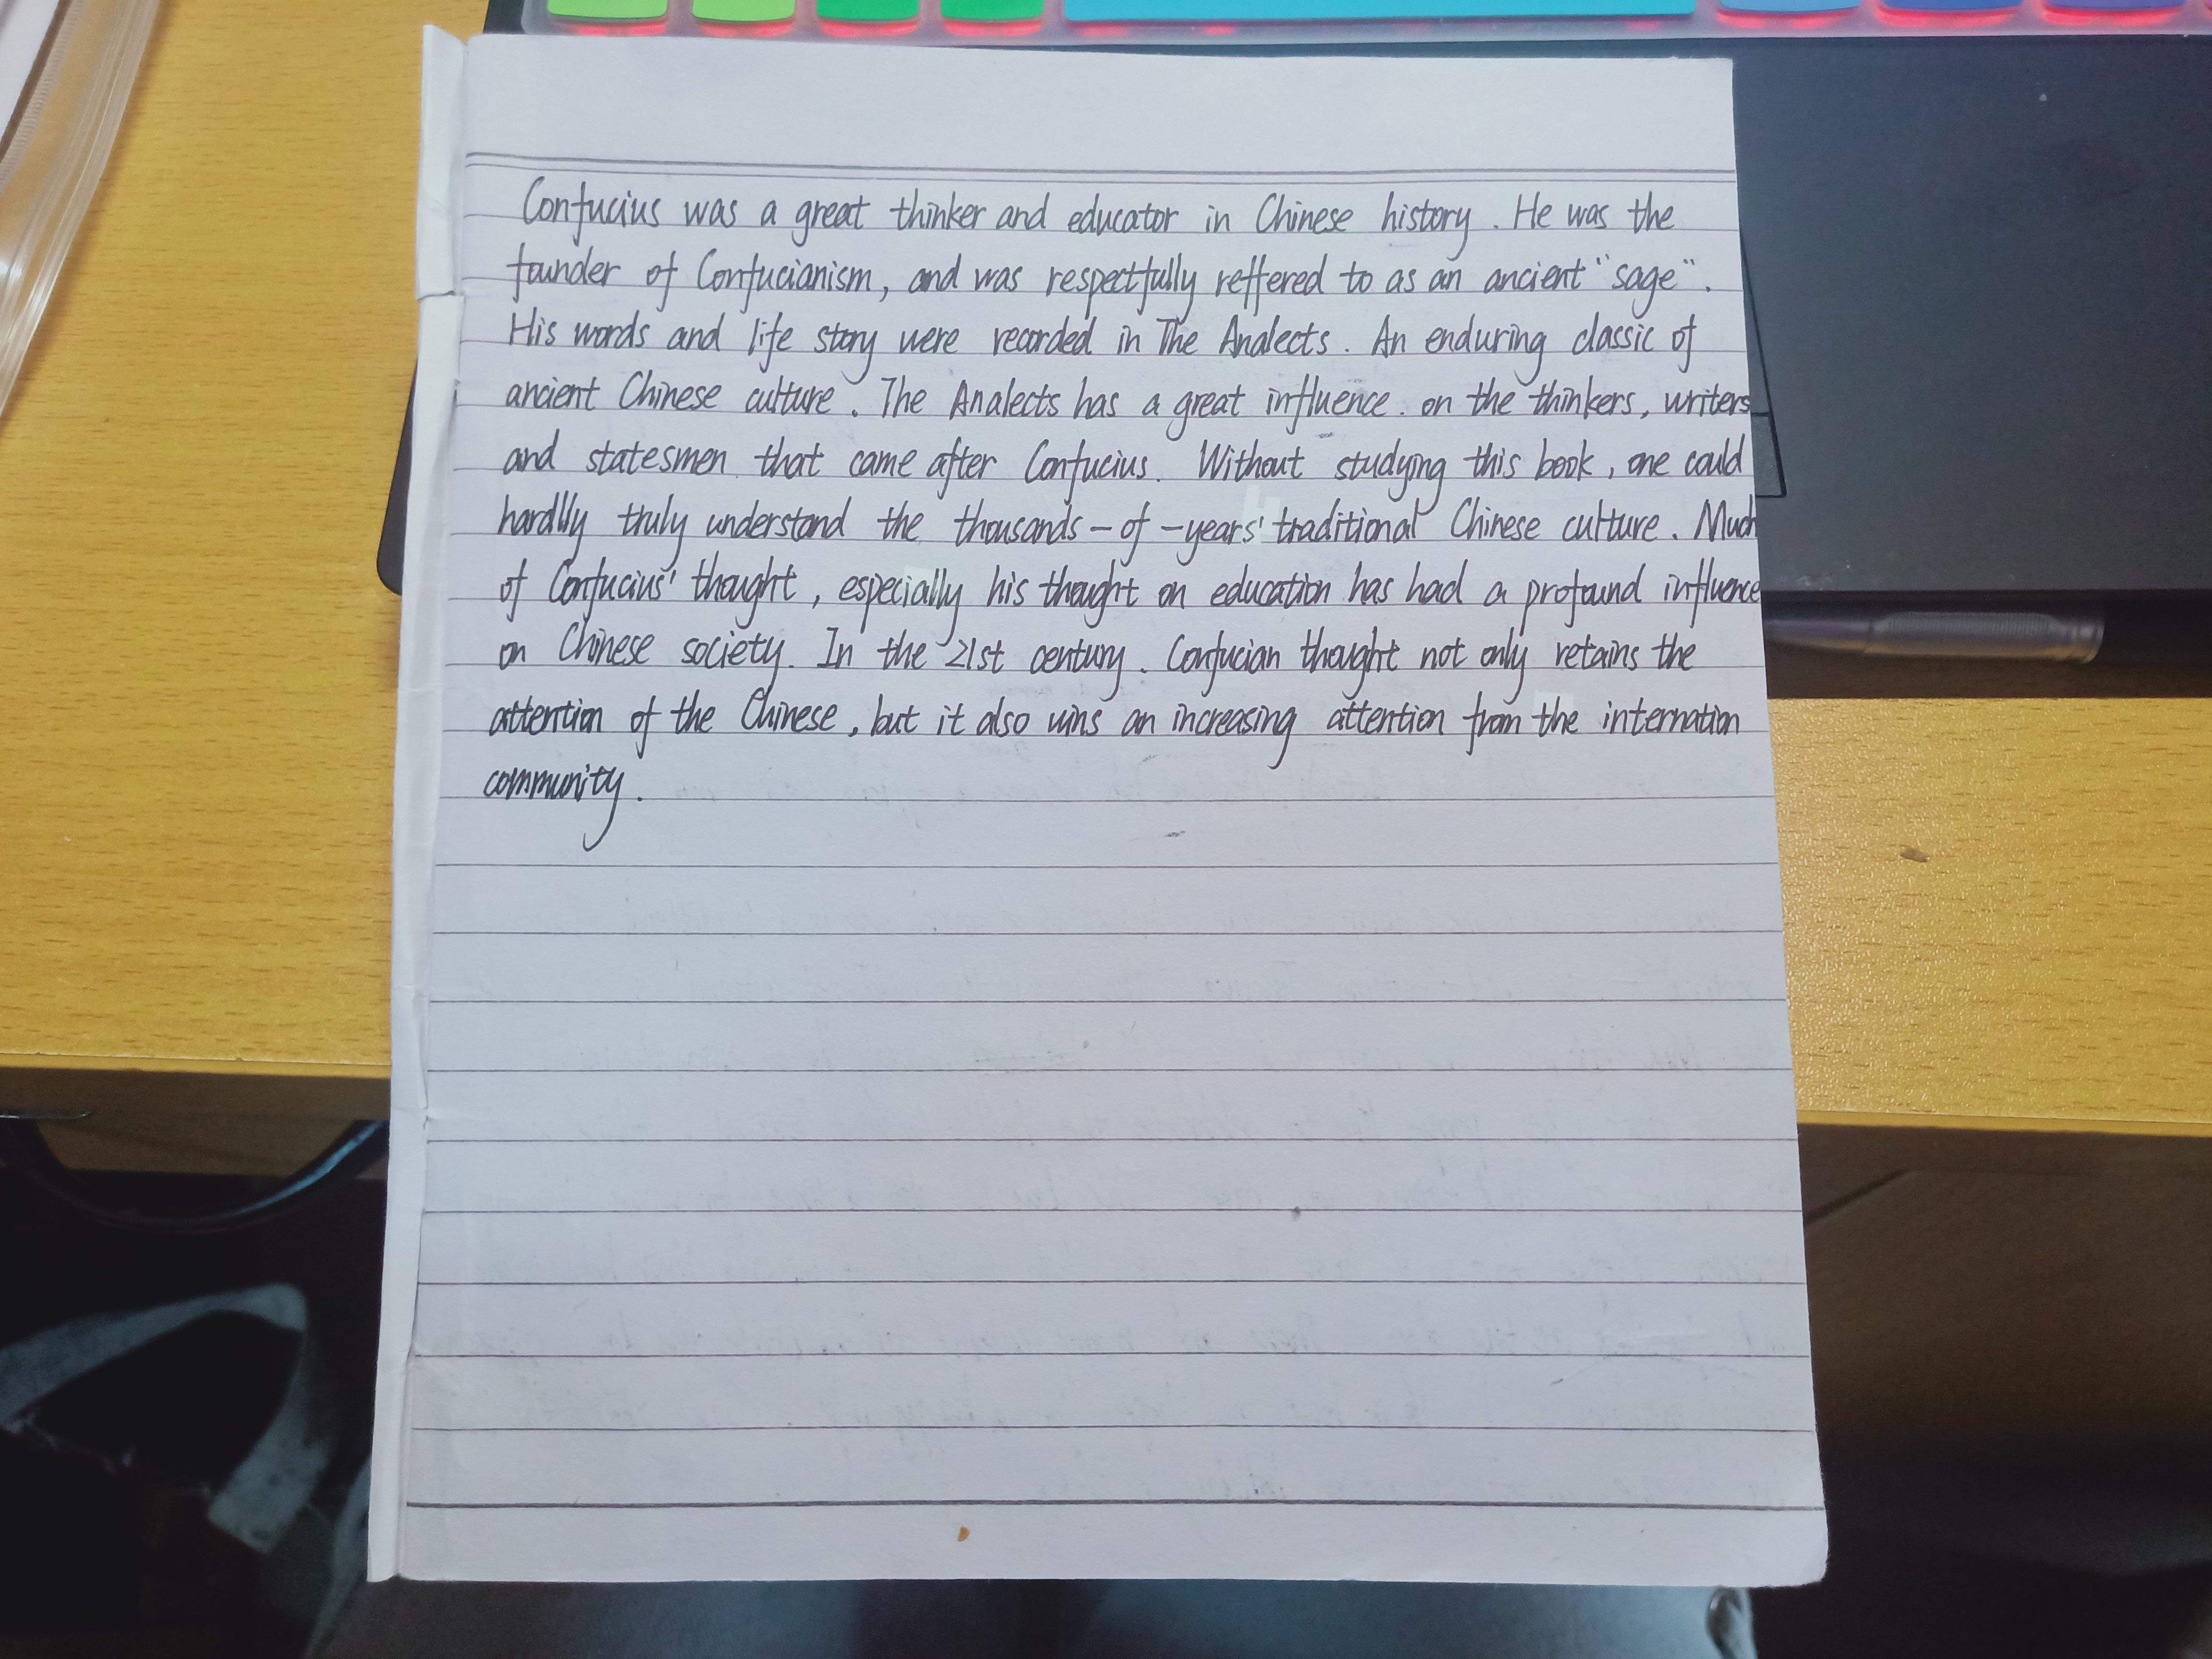 Confucius was a great thinker and educator in Chinese history. He was the
founder of Confucianism, and was respectfully reffered to as an ancient "sage".
His words and life story were recorded in The Analects. An enduring classic of
ancient Chinese culture. The Analects has a great influence. on the thinkers, writers
and statesmen that came after Confucius. Without studying this book, one could
hardlly truly understand the thousands-of-years' traditional Chinese culture. Much
of Confucius' thought, especially his thought on education has had a profound influence
on Chinese society. In the 21st century. Confucian thought not only retains the
attention of the Chinese, but it also wins an increasing attention from the internation
community.